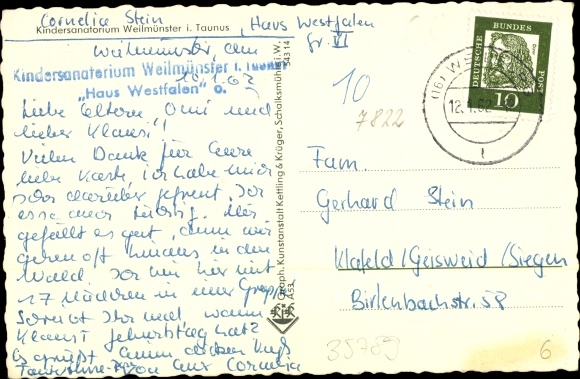 Cornelia Stein, Haus Westfalen
Kindersanatorium Weilmünster i. Taunus
Gr. VI
Weilmünster, den
Kindersanatorium Weilmünster i. Taunus
1.62
„Haus Westfalen"
Liebe Eltern, Omi und
lieber Klausi!
Vielen Dank für Eure
liebe Karte ich habe mich
sehr darüber gefreut. Ich
esse auch tüchtig. Hier
gefällt es gut, denn wir
gehen oft hinaus in den
Wald. Ich bin hier mit
17 Mädchen in einer Gruppe
Schreibt Ihr mal, wann
Klausi Geburtstag hat?
Es grüßt Euch
Eure Cornelia
Graph. Kunstanstalt Kettling & Krüger, Schalksmühle i. W.
54314
A53
DEUTSCHE BUNDES POST
10
12.1.62
10
7822
Fam.
Gerhard Stein
Klafeld/Geisweid/Siegen
Birlenbachstr. 58
35789
6